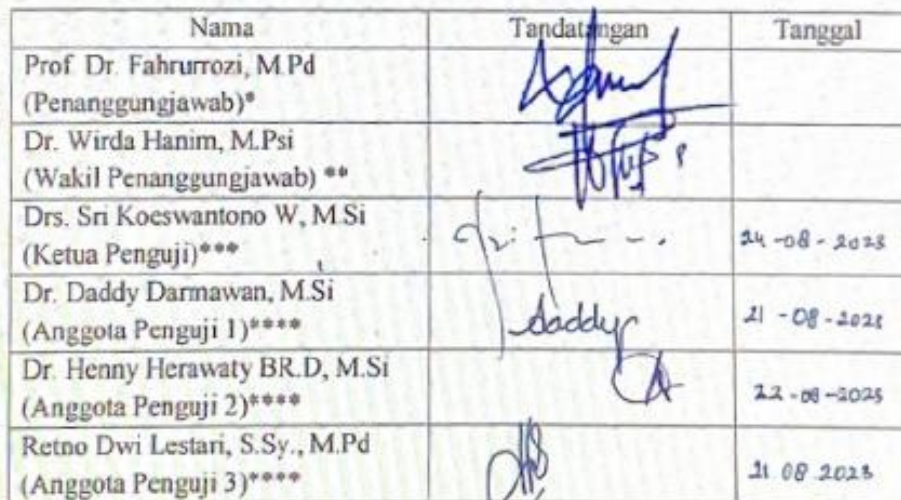 Nama Tandatangan Tanggal
Prof. Dr. Fahrurrozi, M.Pd
(Penanggungjawab)*
Dr. Wirda Hanim, M.Psi
(Wakil Penanggungjawab) **
Drs. Sri Koeswantono W, M.Si
(Ketua Penguji)*** 24-08-2023
Dr. Daddy Darmawan, M.Si
(Anggota Penguji 1)**** daddy 21-08-2023
Dr. Henny Herawaty BR.D, M.Si
(Anggota Penguji 2)**** 22-08-2023
Retno Dwi Lestari, S.Sy., M.Pd
(Anggota Penguji 3)**** 21.08.2023